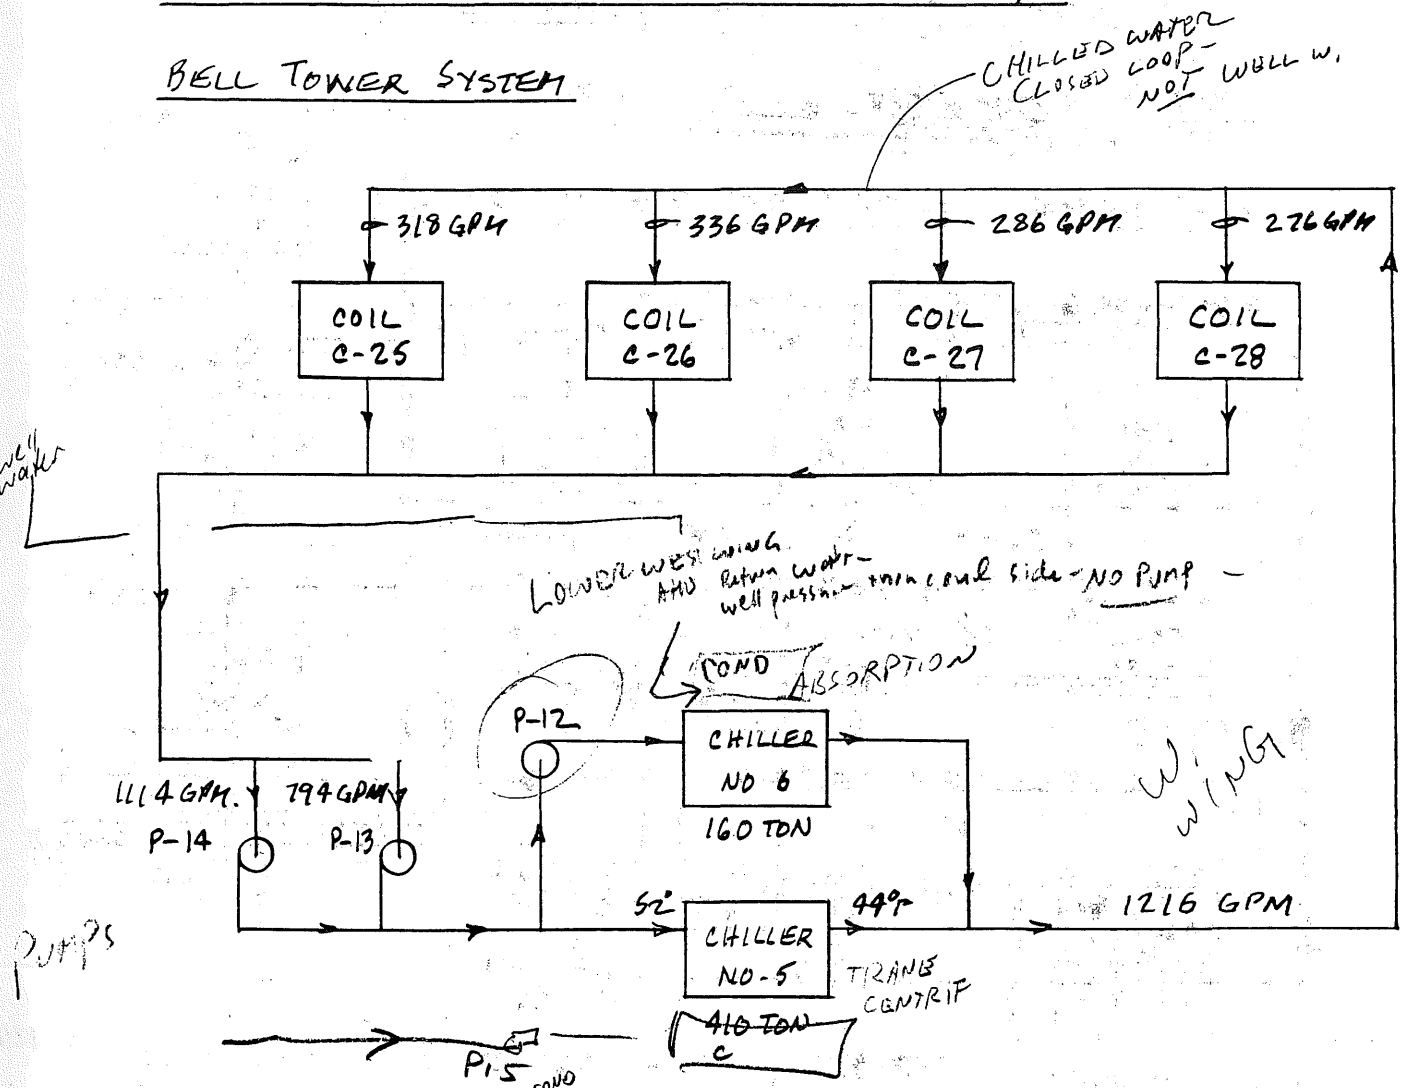 BELL TOWER SYSTEM
CHILLED WATER
CLOSED LOOP-
NOT WELL W.
318 GPM
336 GPM
286 GPM
276 GPM
COIL
C-25
COIL
C-26
COIL
C-27
COIL
C-28
well
water
LOWER WEST WING
AHU Return Water-
well pressure side - NO PUMP -
COND
ABSORPTION
P-12
CHILLER
NO 6
160 TON
W.
WING
1114 GPM.
794 GPM
P-14
P-13
52°
44°F
1216 GPM
CHILLER
NO-5
TRANE
CENTRIF
PUMPS
410 TON
C
P15
COND